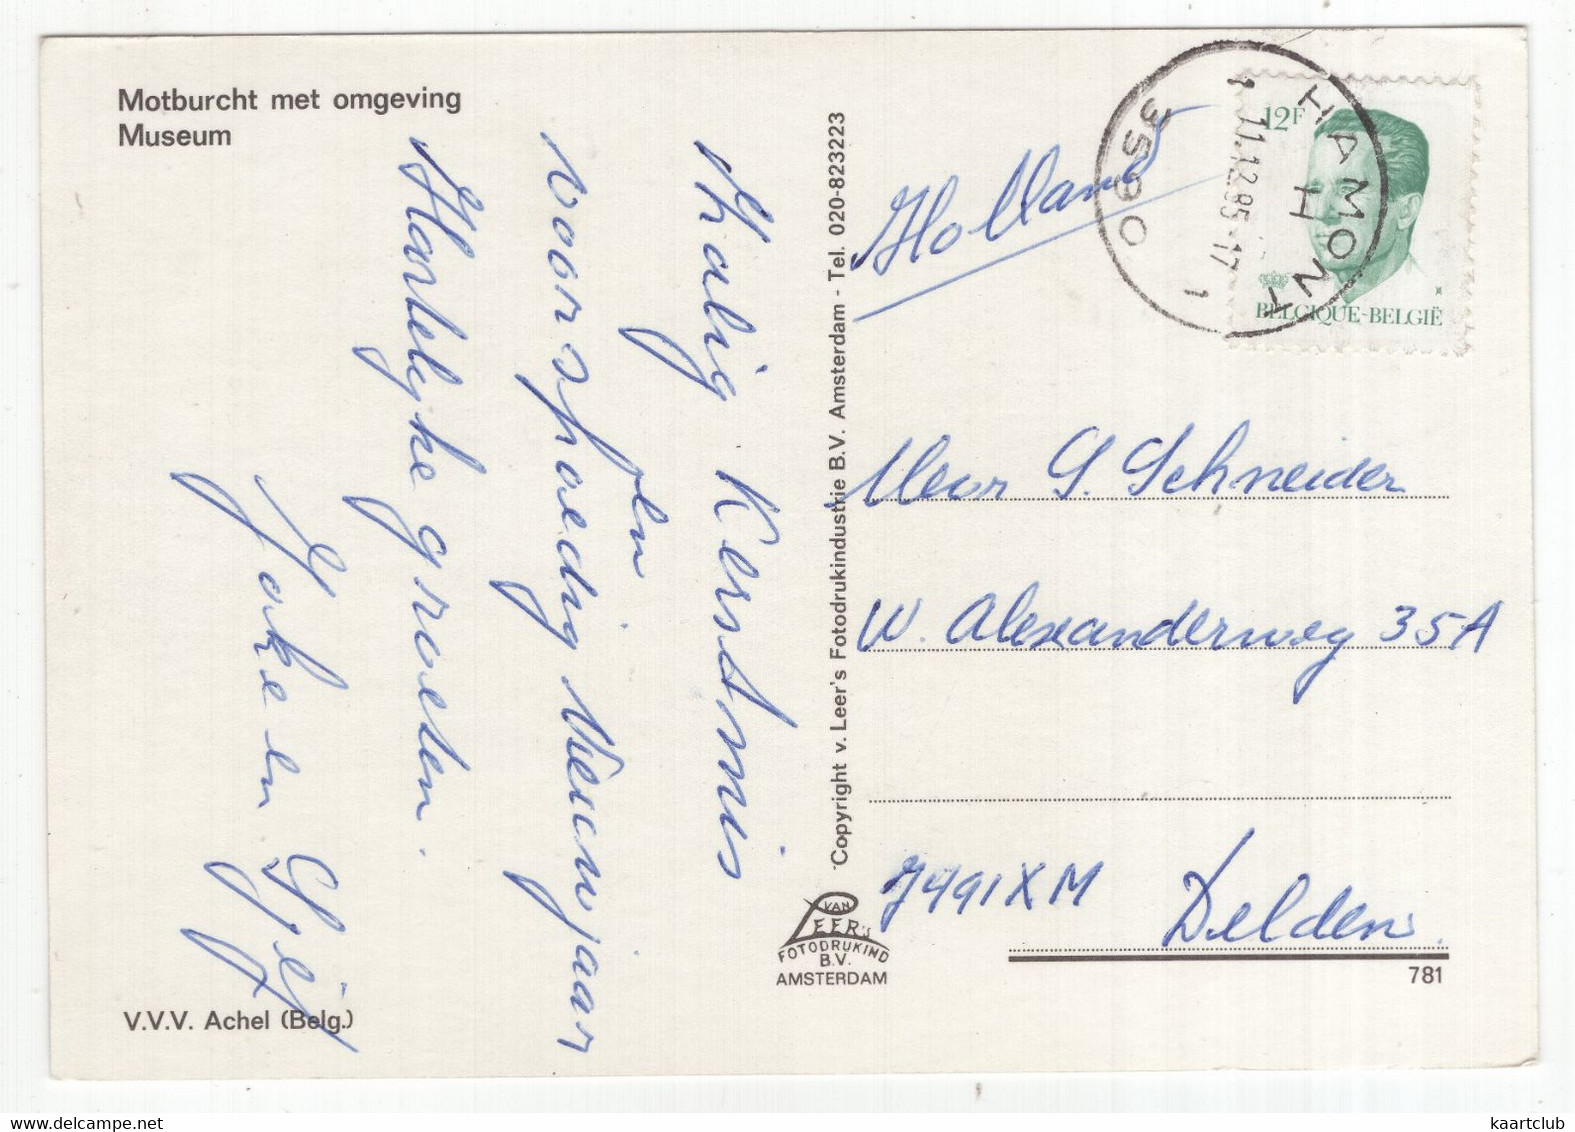 Motburcht met omgeving
Museum
Zalig Kerstmis
en
voorspoedig Nieuwjaar
Hartelyke groeten.
Joke en Gijs
V.V.V. Achel (Belg.)
Copyright v. Leer's Fotodrukindustrie B.V. Amsterdam - Tel. 020-823223
VAN
LEER's
FOTODRUKIND
B.V.
AMSTERDAM
12F
BELGIQUE-BELGIË
HAMONT
H
1 11.12.85-17 1
3590
Holland
Mevr G. Schneider
W. Alexanderweg 35A
7491XM Delden
781
kaartclub